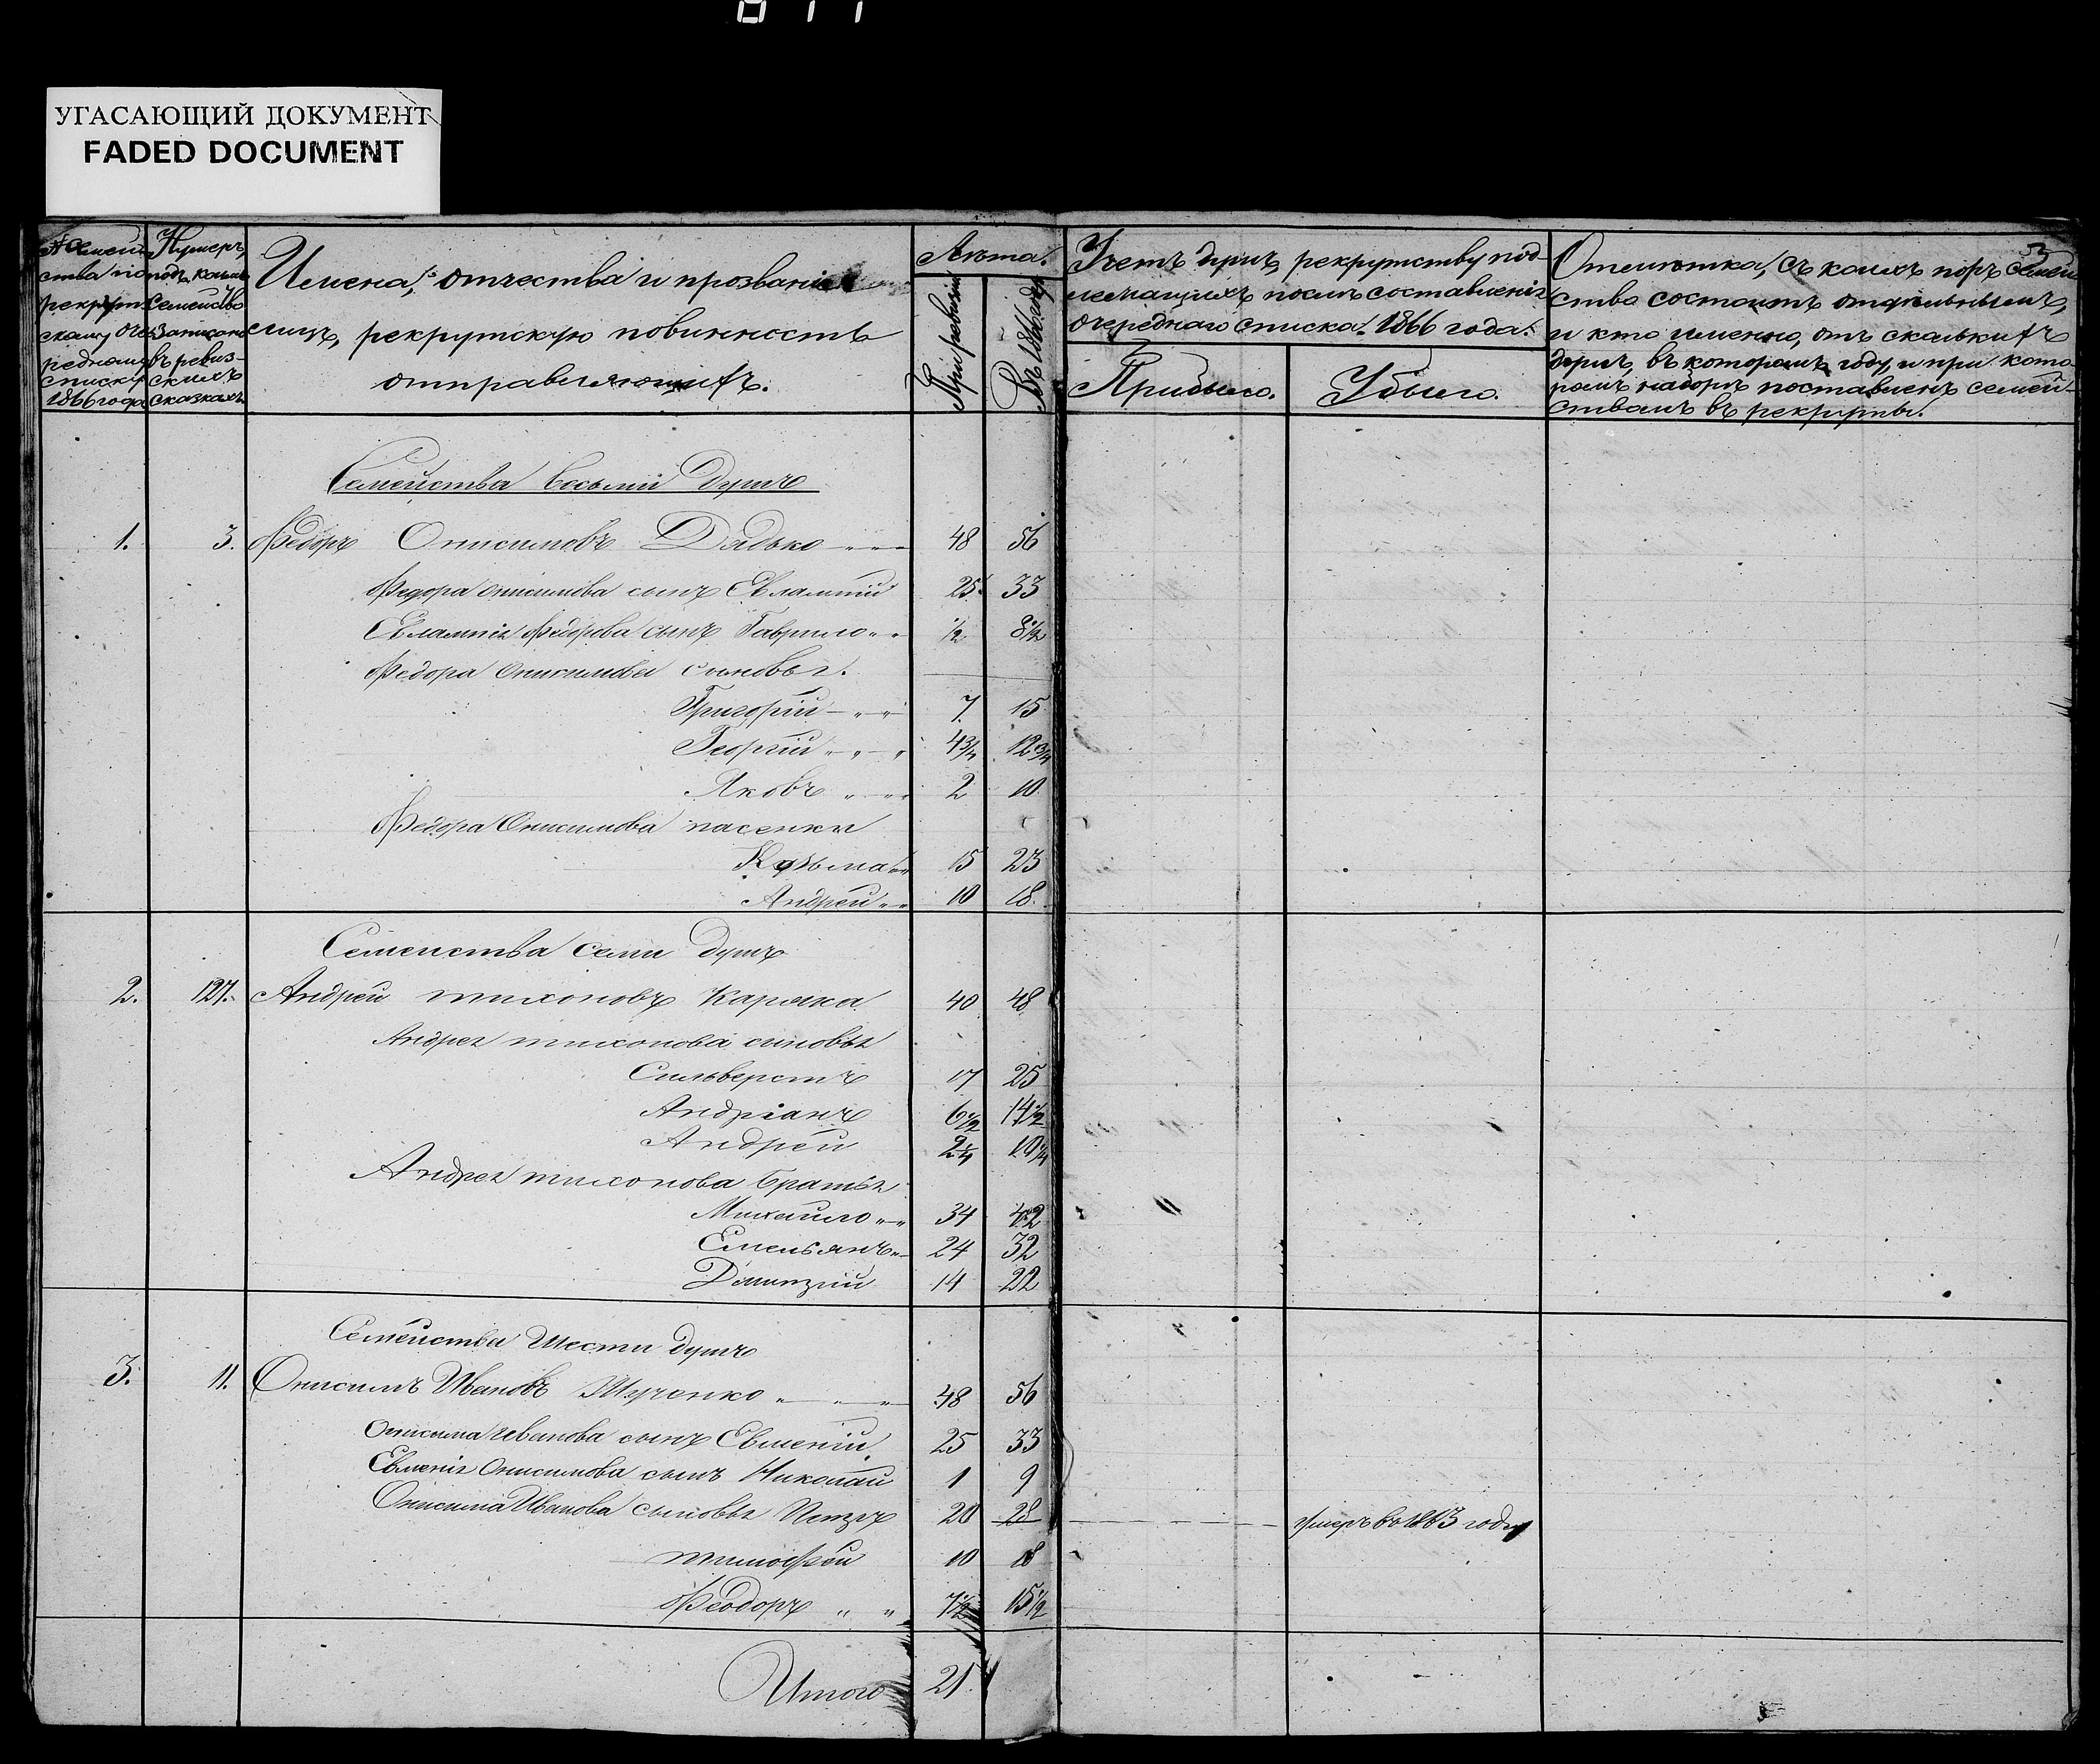 УГАСАЮЩИЙ ДОКУМЕНТ
FADED DOCUMENT
3
№ семей-
ства по
рекрут
скому оче
редному
списку
1866 года
Нумеръ,
подъ коимъ
семейство
записано
въ ревиз-
скихъ
сказкахъ
Имена, отчества и прозванія
лицъ, рекрутскую повинность
отправляющихъ.
Лѣта.
При ревизіи
Въ 186 году
Учетъ душъ, рекрутству под-
лежащихъ послѣ составленія
очереднаго списка 1866 года.
Прибыло.
Убыло.
Отмѣтка, съ коихъ поръ семей
ство состоитъ отдѣльнымъ,
и кто именно, отъ сколькихъ
душъ, въ которомъ году, и при кото-
ромъ наборѣ поставленъ семей-
ствомъ въ рекруты.
Семейства восьми душъ
1. 3. Федоръ Онисимовъ Дядько 48 56
Федора Онисимова сынъ Евлампій 25 33
Евлампія Федорова сынъ Гаврило 1/2 8 1/2
Федора Онисимова сыновья.
Григорій 7 15
Георгій 4 3/4 12 3/4
Яковъ 2 10
Федора Онисимова пасенки
Козьма 15 23
Андрей 10 18.
Семейства семи душъ
2. 127. Андрей Тихоновъ Каряка 40 48
Андрея Тихонова сыновья
Сильверстъ 17 25
Андріанъ 6 1/2 14 1/2
Андрей 2 1/4 10 1/4
Андрея Тихонова братья
Михайло 34 42
Емельянъ 24 32
Дмитрій 14 22
Семейства шести душъ
3. 11. Онисимъ Ивановъ 48 56
Онисима Иванова сынъ Евменій 25 33
Евменія Онисимова сынъ Николай 1 9
Онисима Иванова сыновья Петръ 20 28 умеръ въ 1863 году
Тимофей 10 18
Феодоръ 7 1/2 15 1/2
Итого 21